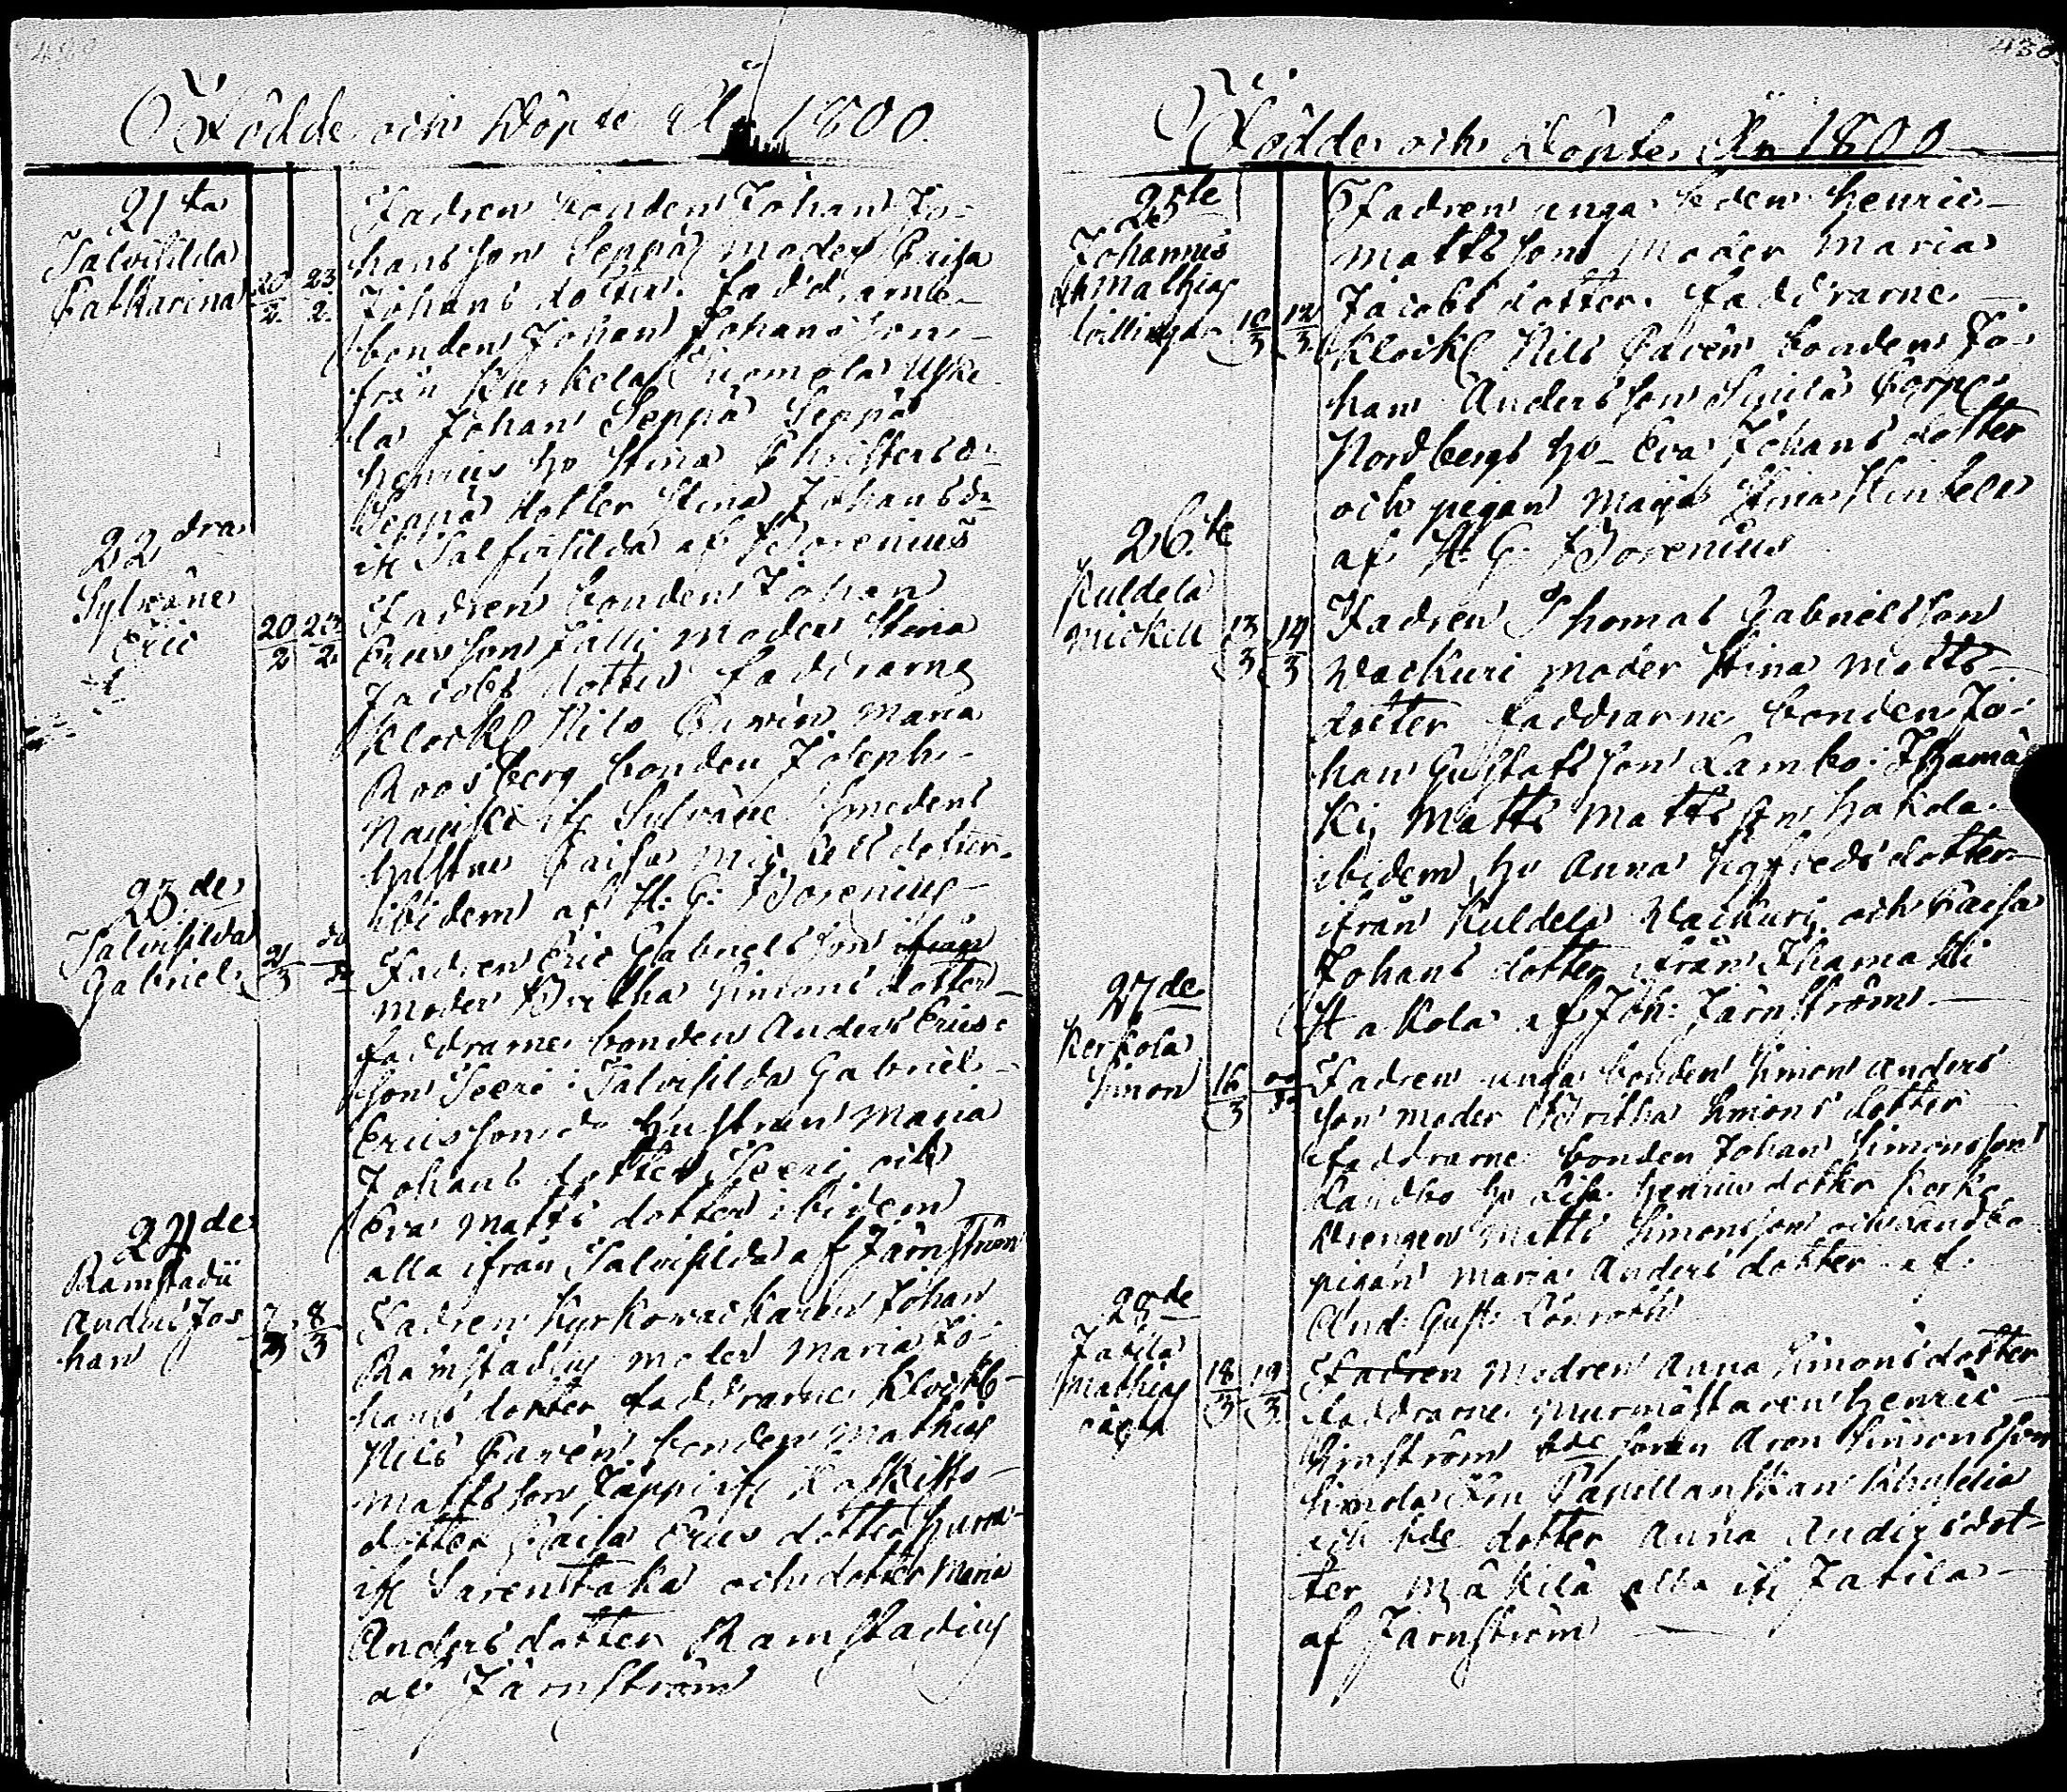 Födde och Döpte År 1800.
21sta
Salvisilda
Catharina
20/2 23/2
Fadren bonden Johan Jo-
hansson Seppä, moder Caisa
Johans dotter. faddrarne
bonden Johan Johansson
från Kurkela Suomola Uske
la Johan Seppä Seppä
Henrics h:o Stina Christersd:r
Seppä dotter Stina Johansd:r
if: Salfvisilda af Borenius
22dra
Sylväne
Eric
20/2 23/2
Fadren bonden Johan
Ericsson Fälli moder Stina
Jacobs dotter faddrarne
Klock: Nils Cavén Maria
Roosberg bonden Joseph
if: Sylväne Smedens
hustru Caisa Mickellsdotter
ibidem af H: G: Borenius
23de
Salvisilda
Gabriel
2/3
Fadren Eric Gabrielsson ifrån
moder Britha Simons dotter
faddrarne bonden Anders Erics-
son Seeri: Salvisilda Gabriel
Ericsson d:o hustrun Maria
Johans dotter Seeri, och
Eva Matts dotter ibidem
alla ifrån Salvisilda af Järnström
24de
Ramstadii
Anders Jo-
han
7/3 8/3
Fadren Kyrkovacktaren Johan
Ramstadius moder Maria Jo-
hans dotter faddrarne Klock:
Nils Cavén bonden Mathias
Mattsson Jäppi if:
dotter Caisa Erics dotter
if: Sarenstaka och dotter Maria
Anders dotter Ramstadius
af Järnström
430
Födde och Döpte År 1800
25te
Johannes
och Mathias
tvillingar
10/3 12/3
Fadren unga bonden Henric
Mattsson Moder Maria
Jacobs dotter. faddrarne
Klock: Nils Cavén bonden Jo-
han Andersson Corp:
Nordbergs h:o Eva Johans dotter
och pigan Maja Stina
af H. G. Borenius
26te
Kuldela
Mickell
13/3 14/3
Fadren Thomas Gabrielsson
Wackuri moder Stina Matts
dotter faddrarne bonden Jo-
han Gustafsson Lambo: Ihamä
ki, Matts Mattsson Hakola
ibidem, h:o Anna Sigfreds dotter
ifrån Kuldela Wackuri och Caisa
Johans dotter ifrån Ihamäki
Hakola af Joh: Järnström
27de
Kerkola
Simon
16/3
Fadren unga bonden Simon Anders
son moder Britha Simons dotter
faddrarne bonden Johan Simonsson
Landbo h:o Lisa Henrics dotter Kerko
Drengen Matts Simonsson och Landbo
pigan Maria Anders dotter af
And: Gust: Lönroth
28de
Jatila
Mathias
oägta
18/3 19/3
Fadren Modren Anna Simonsdotter
faddrarne Murmästaren Henric
bde sonen Aron Simonsson
Simola
och bde dotter Anna Andersdot-
ter Mäkilä alla if: Jatila
af Järnström